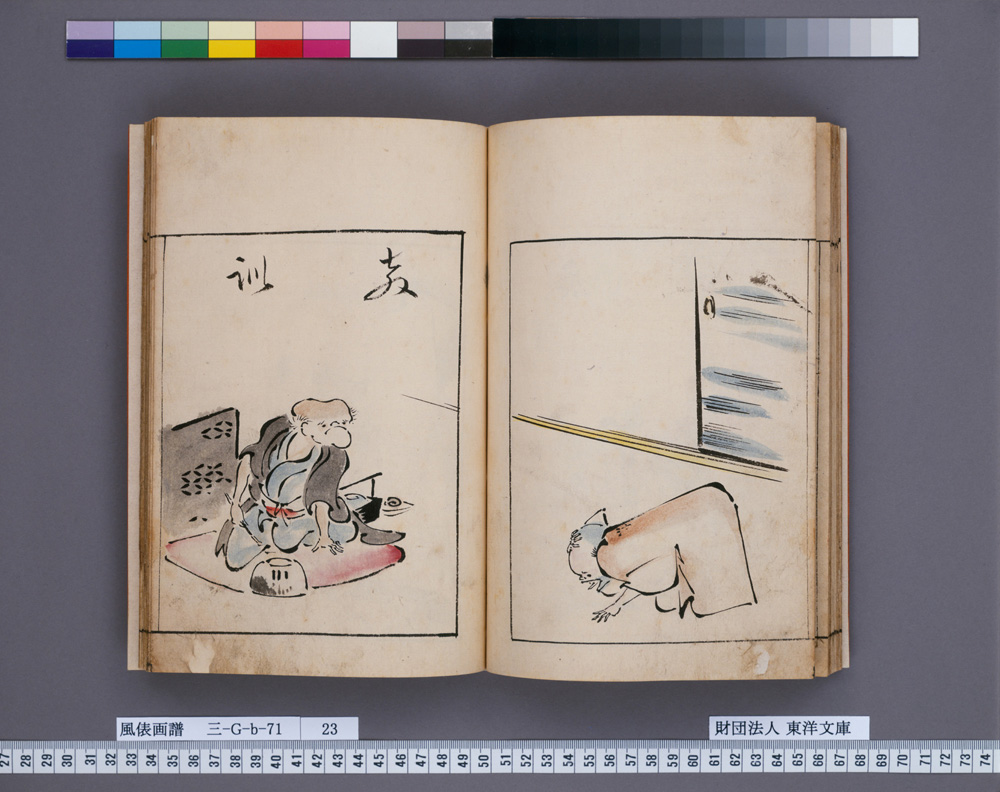 教訓
風俵画譜 三-G-b-71 23
財団法人 東洋文庫
27 28 29 30 31 32 33 34 35 36 37 38 39 40 41 42 43 44 45 46 47 48 49 50 51 52 53 54 55 56 57 58 59 60 61 62 63 64 65 66 67 68 69 70 71 72 73 74